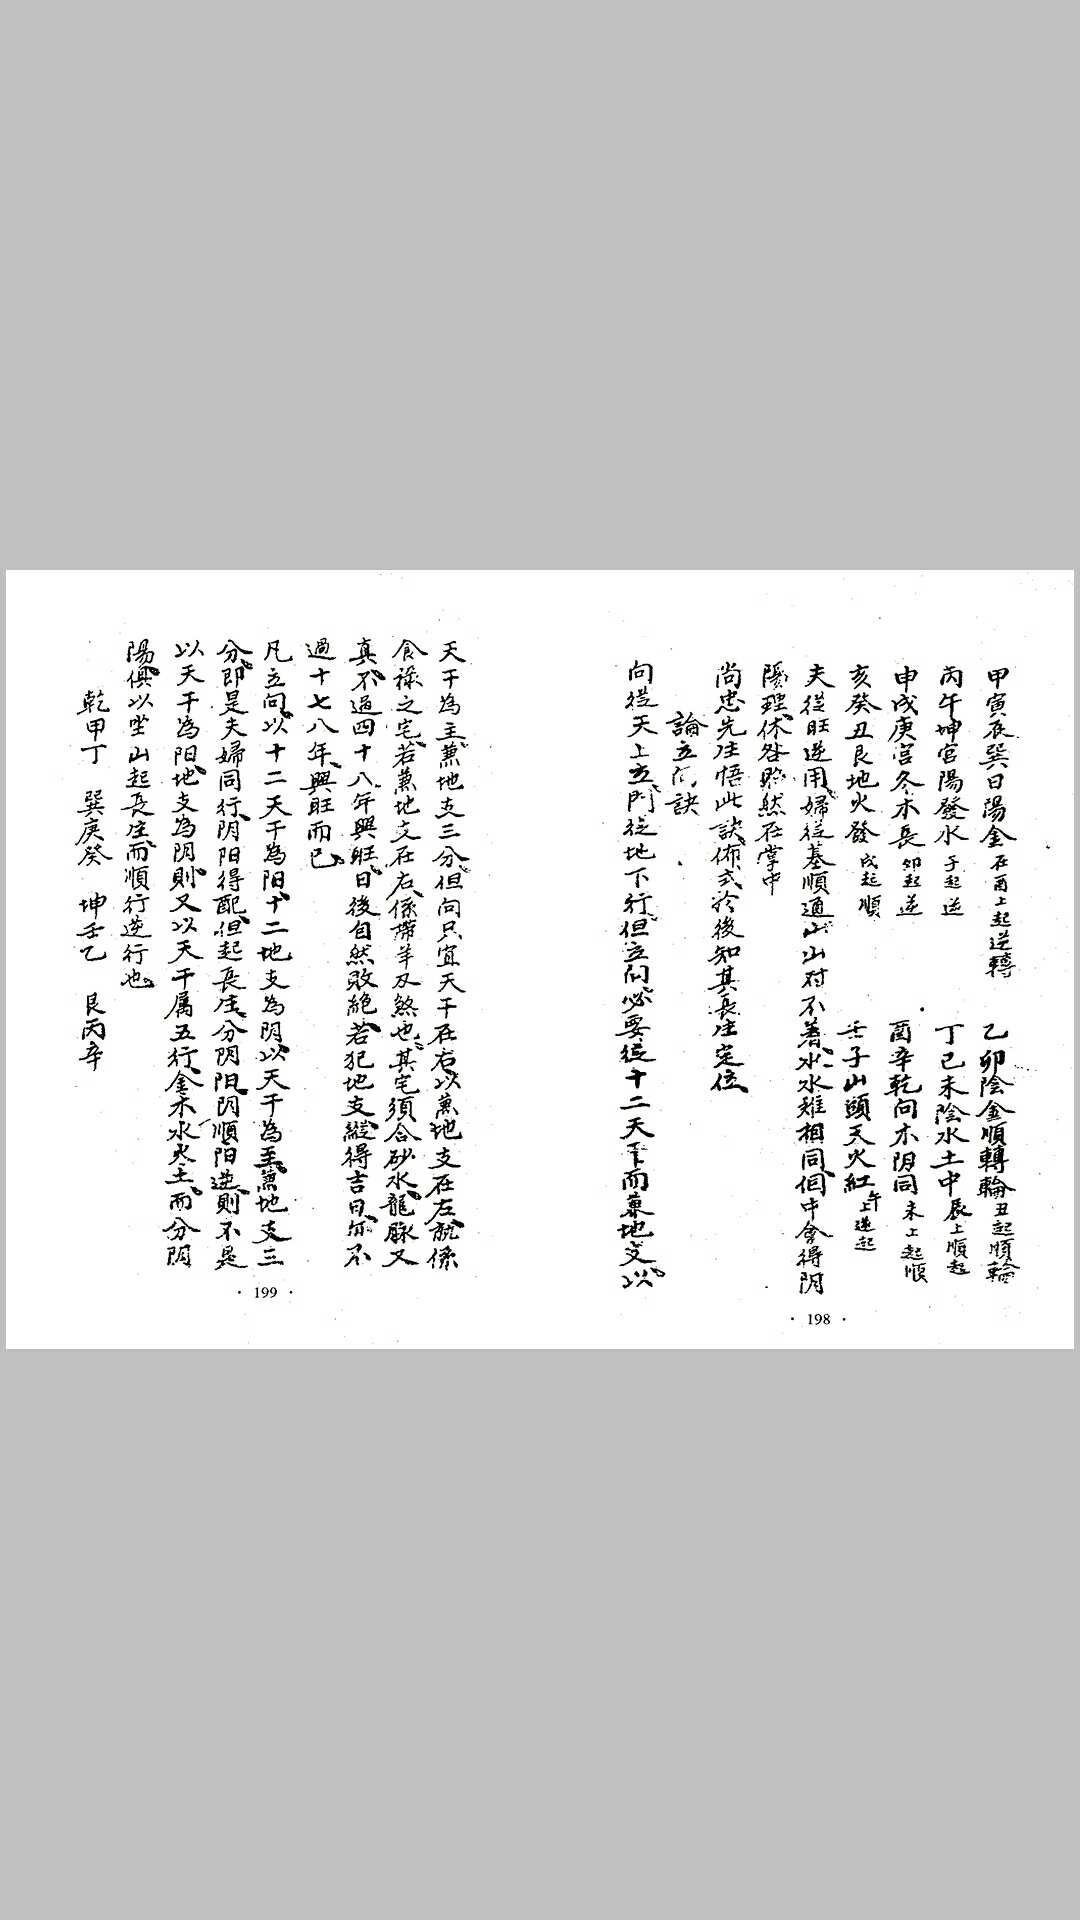 甲寅辰巽日陽金 在酉上起逆轉 乙卯陰金順轉輪 丑起順輪
丙午坤宮陽發水 子起逆 丁巳未陰水土中 辰上順起
申戌庚宮冬木長 卯起逆 酉辛乾向木阴同 未上起順
亥癸丑艮地火發 戌起順 壬子山頭天火紅 午上逆起
夫從旺逆用婦從墓順通山山对不着水水难相同個中會得阴
陽理休咎照然在掌中
尚忠先生悟此訣佈式於後知其長生定位
論立向訣
向從天上立門從地下行但立向必要從十二天干而兼地支以
· 198 ·
天干為主兼地支三分但向只宜天干在右以兼地支在左就係
食祿之宅若兼地支在右係帶羊刃煞也其宅須合砂水龍脉又
真不過四十八年興旺日後自然敗絕若犯地支縱得吉日亦不
過十七八年興旺而已
凡立向以十二天干為阳十二地支為阴以天干為主兼地支三
分即是夫婦同行阴阳得配但起長生分阴阳阴順阳逆則不是
以天干為阳地支為阴則又以天干属五行金木水火土而分阴
陽俱以坐山起長生而順行逆行也
乾甲丁 巽庚癸 坤壬乙 艮丙辛
· 199 ·